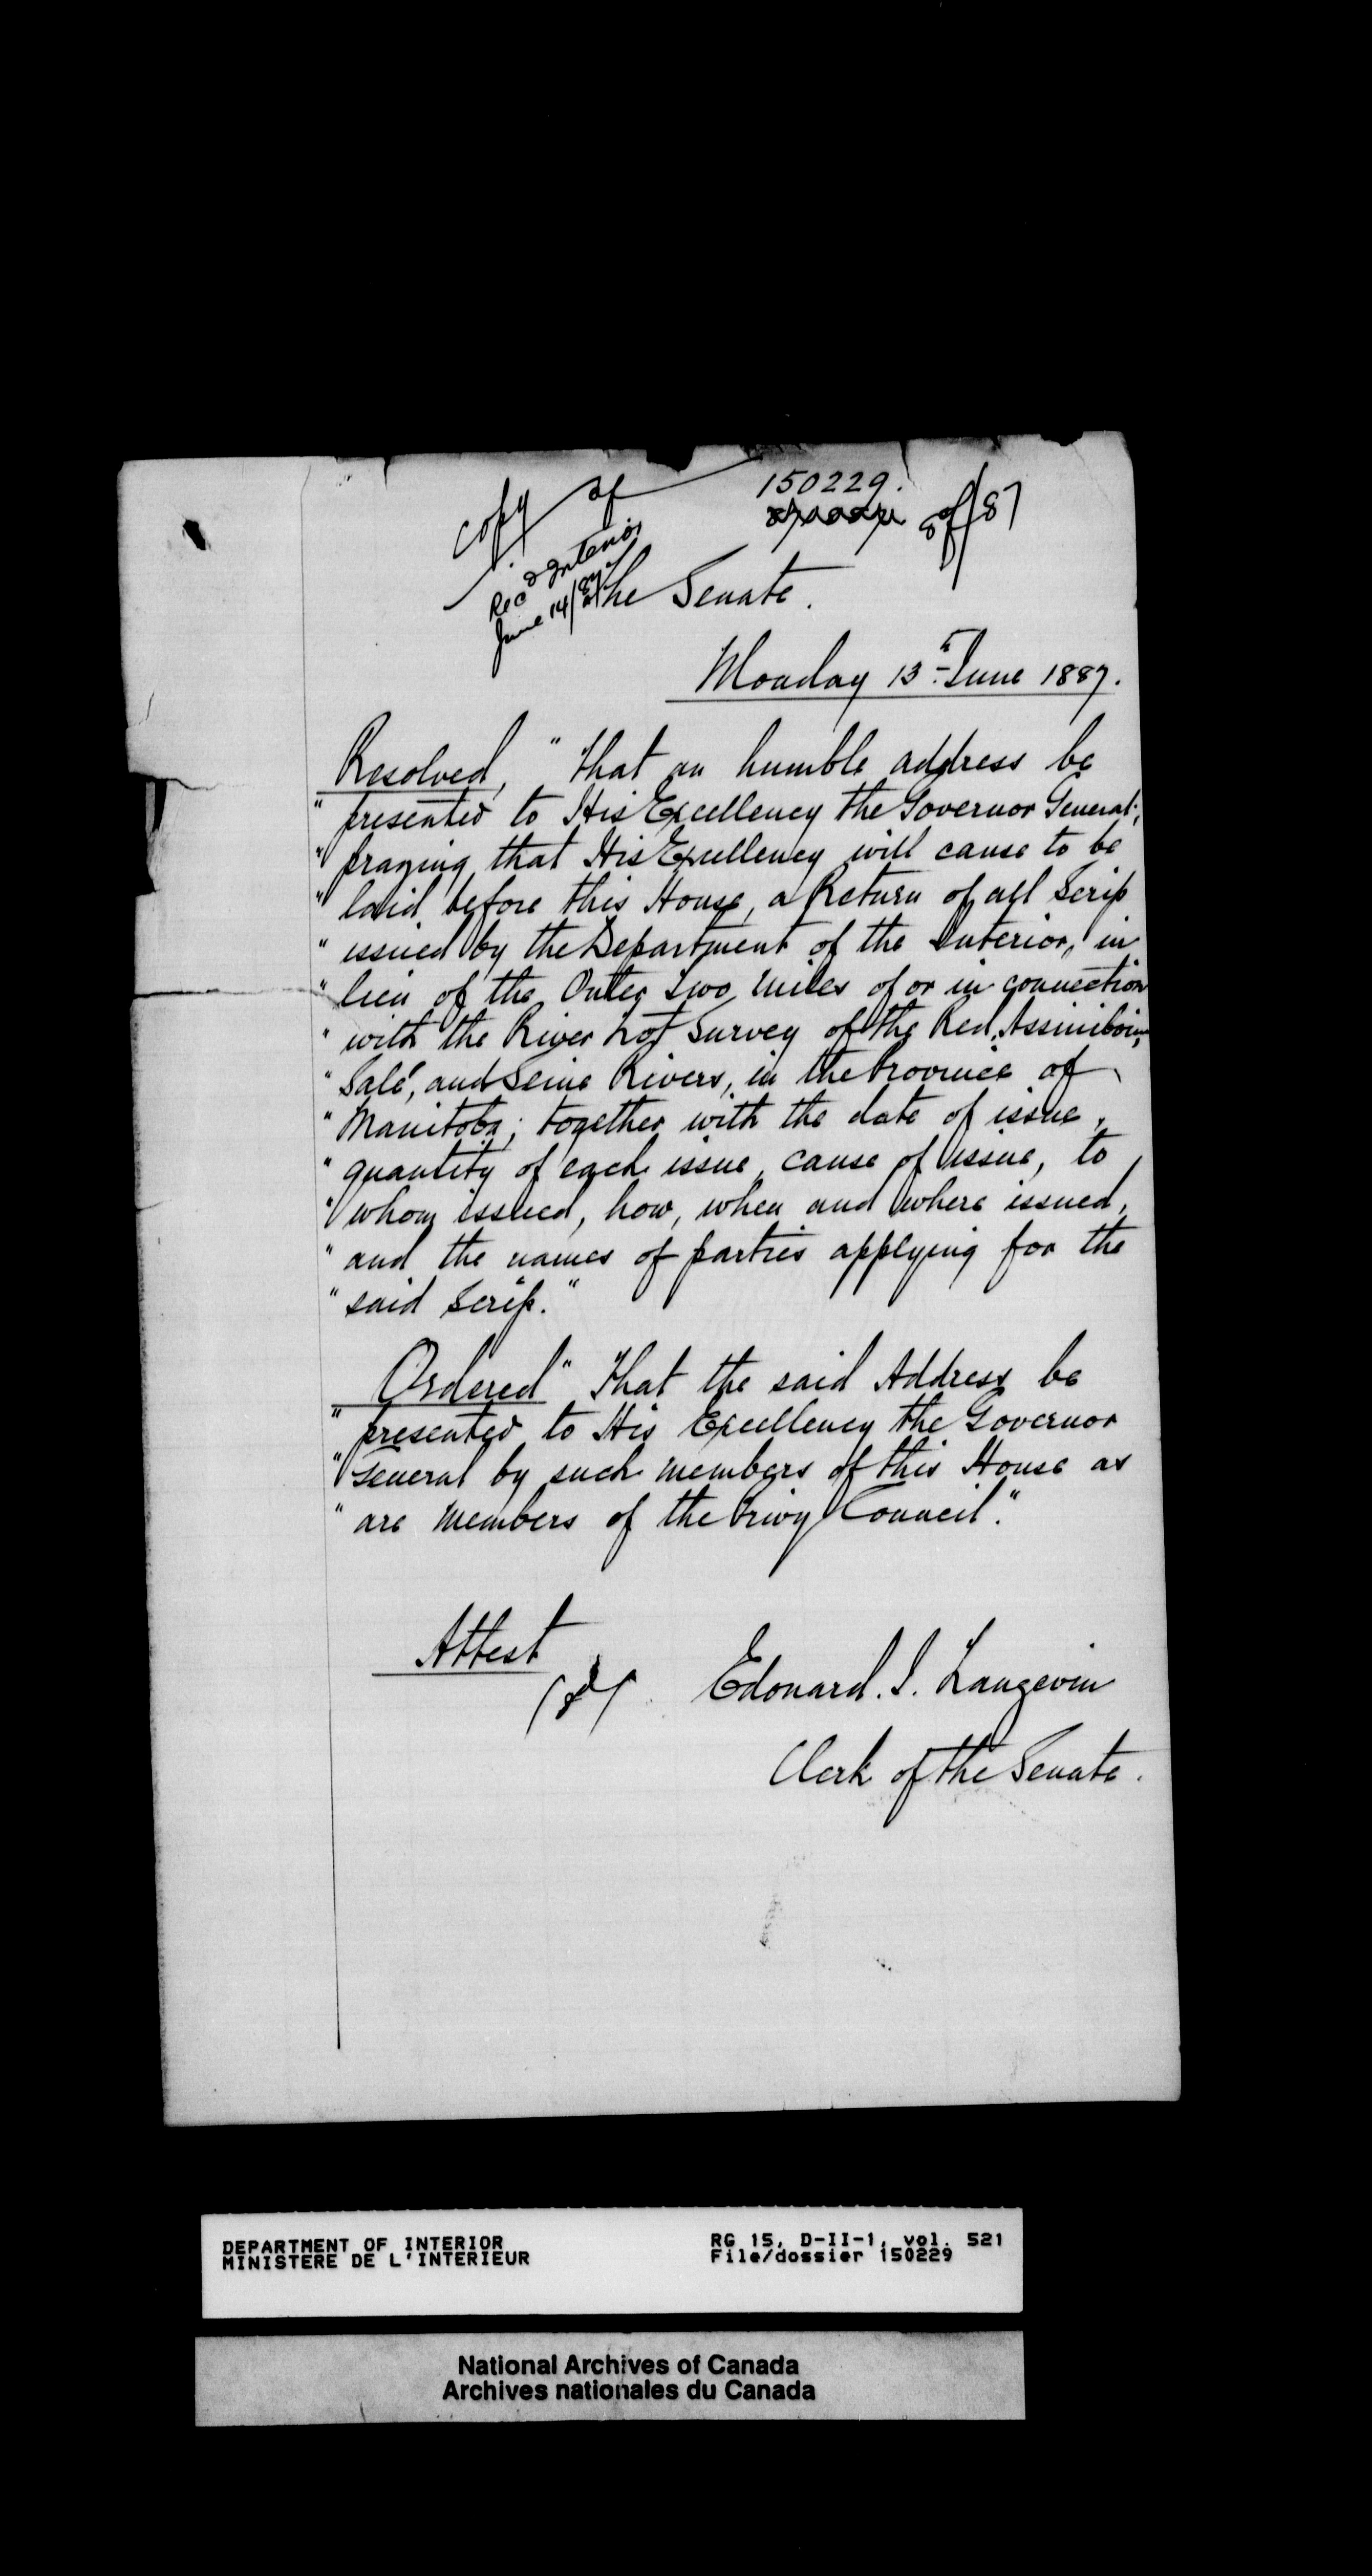 Copy of
150229.
8 of/87
Rec'd Interior
June 14/87
The Senate.
Monday 13th June 1887.
Resolved, "That an humble address be
" presented to His Excellency the Governor General;
" praying that His Excellency will cause to be
" laid before this House, a Return of all Scrip
" issued by the Department of the Interior, in
" lieu of the Outer two miles of or in connection
" with the River Lot Survey of the Red, Assiniboine,
" Salé, and Seine Rivers, in the Province of
" Manitoba; together with the date of issue,
" quantity of each issue, cause of issue, to
" whom issued, how, when and where issued,
" and the names of parties applying for the
" said Scrip."
Ordered "That the said Address be
" presented to His Excellency the Governor
" General by such members of this House as
" are members of the Privy Council."
Attest
Edouard. J. Langevin
Clerk of the Senate.
DEPARTMENT OF INTERIOR RG 15, D-II-1, vol. 521
MINISTERE DE L'INTERIEUR File/dossier 150229
National Archives of Canada
Archives nationales du Canada